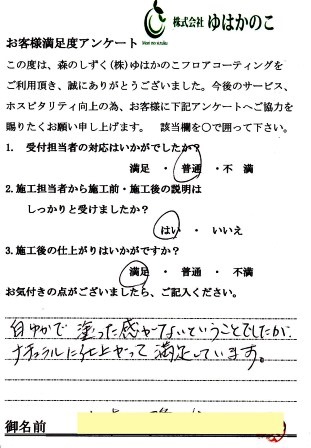 株式会社 ゆはかのこ
Mori no sizuku
お客様満足度アンケート
この度は、森のしずく(株)ゆはかのこフロアコーティングを
ご利用頂き、誠にありがとうございました。今後のサービス、
ホスピタリティ向上の為、お客様に下記アンケートへご協力を
賜りたくお願い申し上げます。 該当欄を○で囲って下さい。
1. 受付担当者の対応はいかがでしたか?
満足 ・ 普通 ・ 不 満
2.施工担当者から施工前・施工後の説明は
しっかりと受けましたか?
はい ・ いいえ
3.施工後の仕上がりはいかがですか?
満足 ・ 普通 ・ 不満
お気付きの点がございましたら、ご記入ください。
塗った感がないということでしたが、
ナチュラルに仕上がって満足しています。
御名前